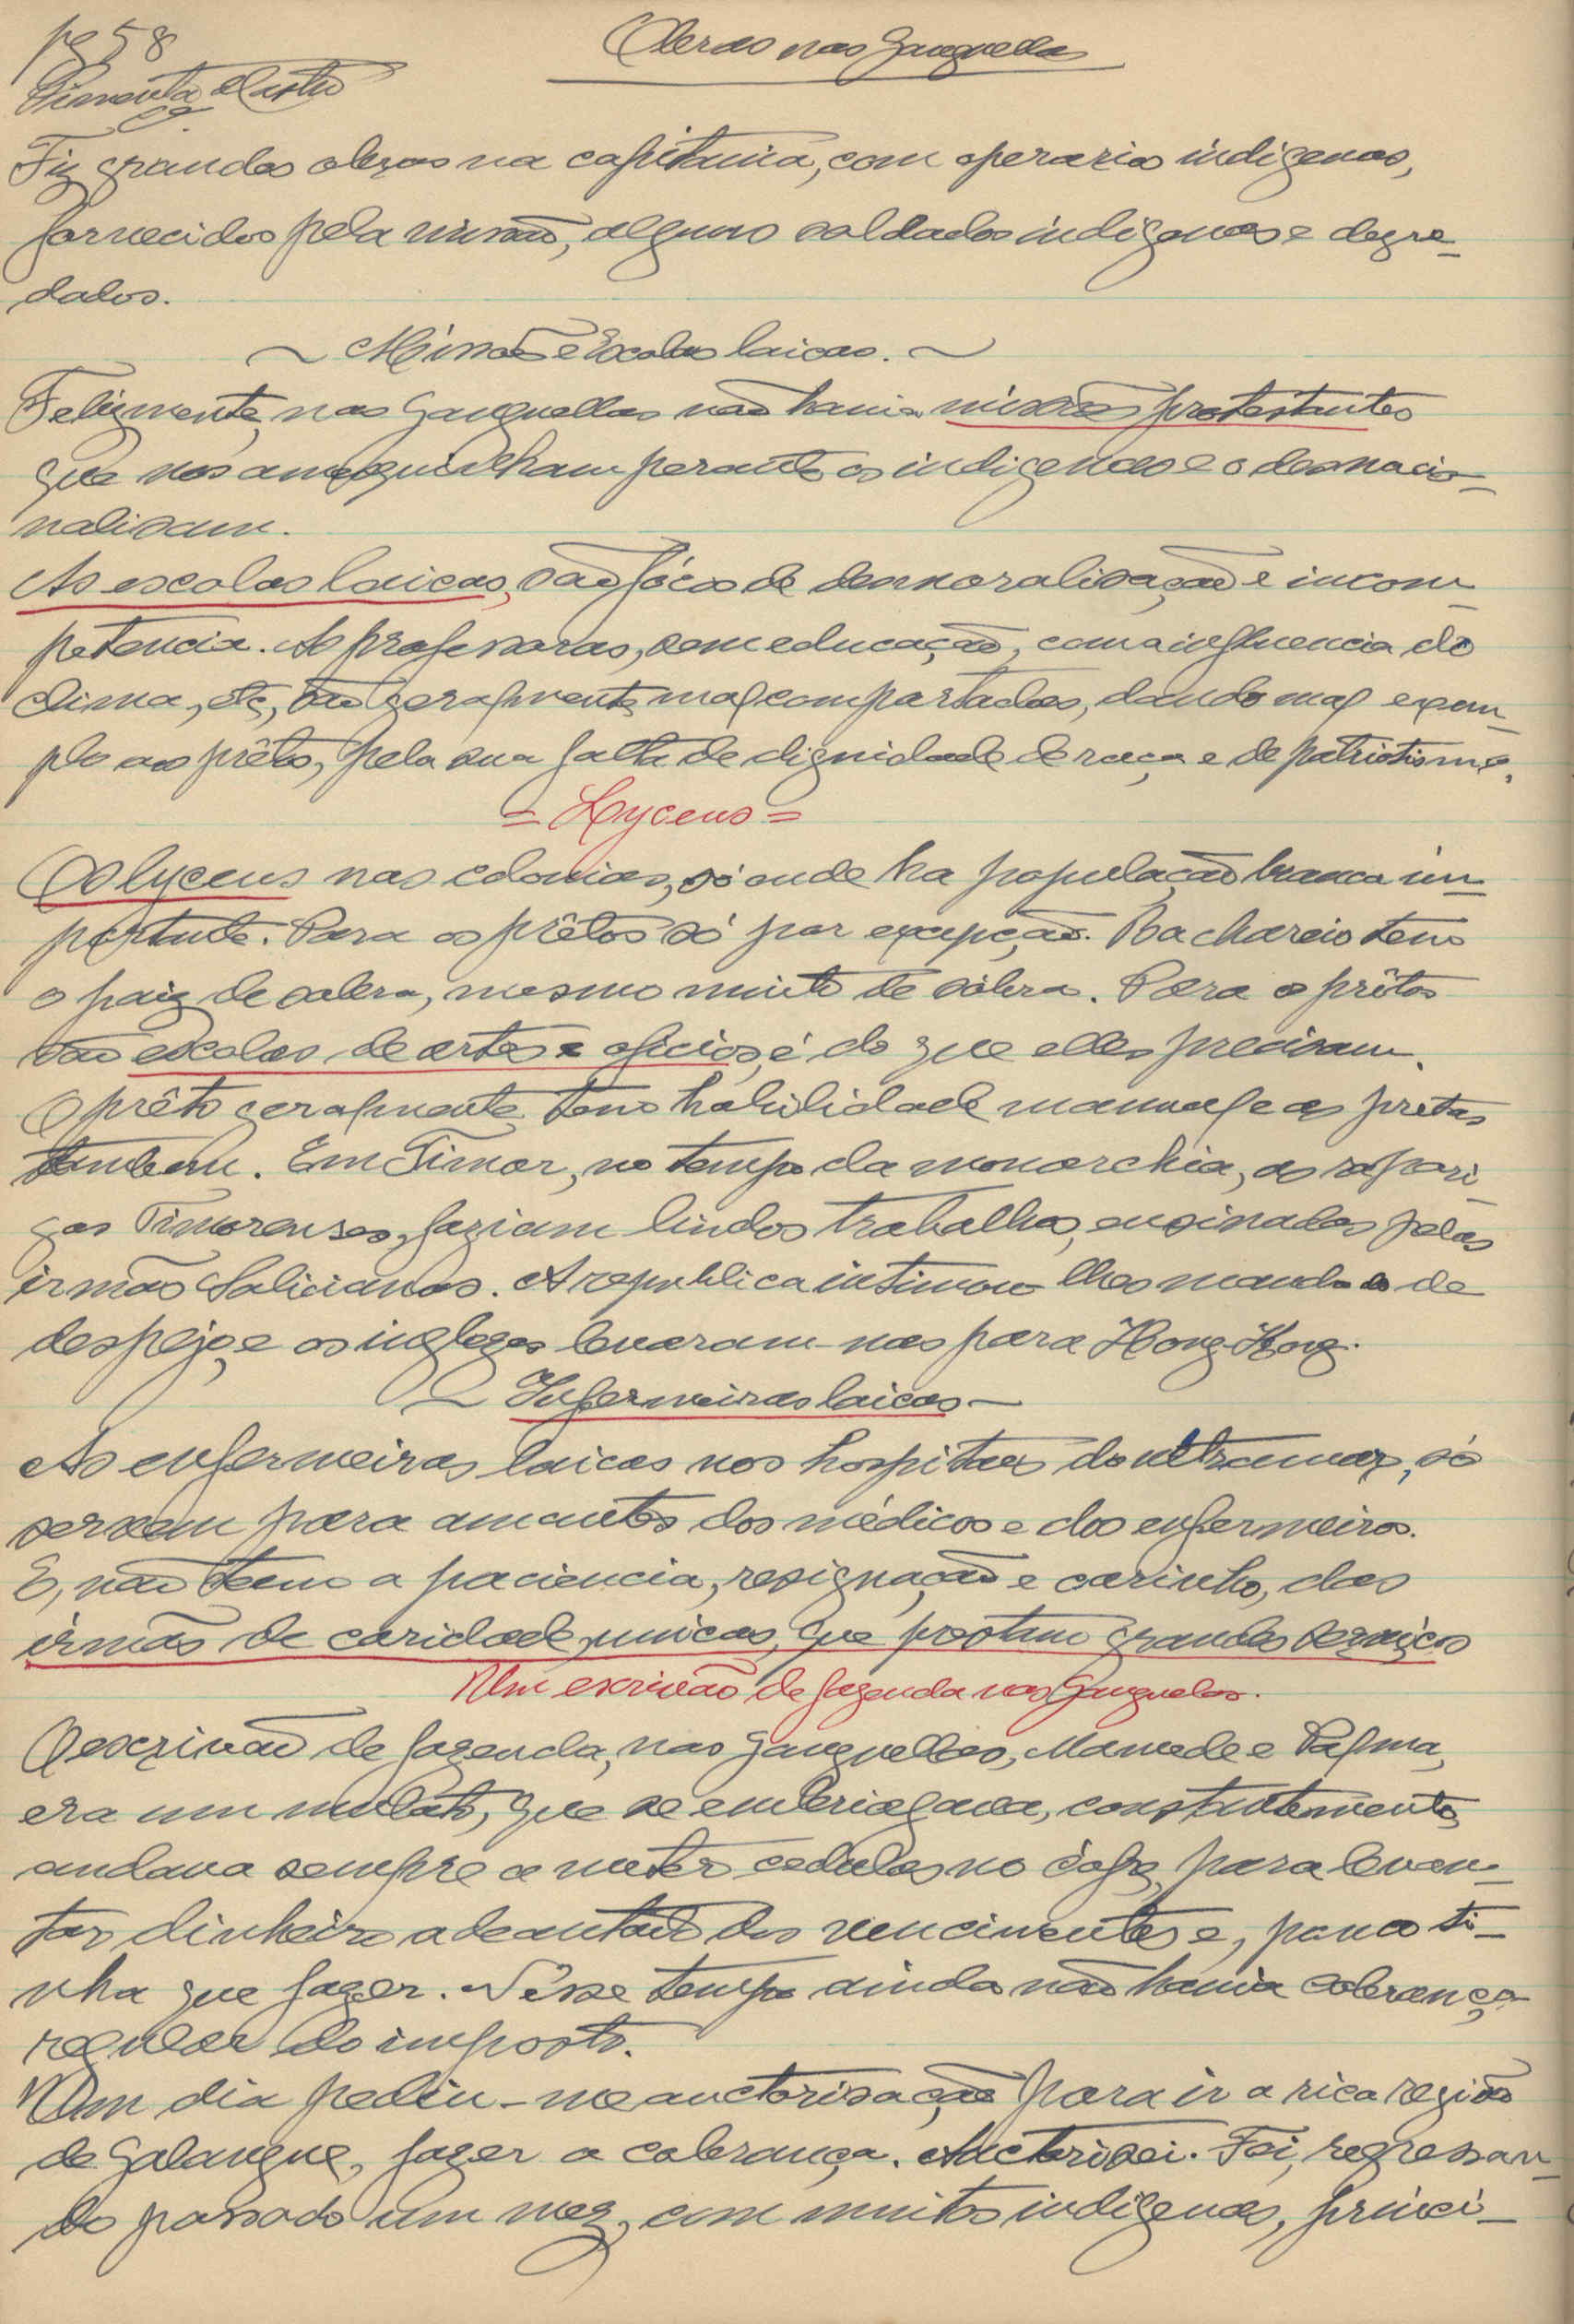 pg 58
Obras nas Ganguellas
Pimenta de Castro
Fiz grandes obras na capitania, com operarios indigenas,
fornecidos pela missão, alguns soldados indigenas e degre-
dados.
~ Missões e Escolas laicas. ~
Felizmente, nas Ganguellas não havia missões protestantes
que nos amesquinham perante os indigenas e o desnacio-
nalisam.
As escolas laicas, são fócos de desmoralisação e incom-
petencia. As professoras, sem educação, com a influencia do
clima, etc, são geralmente mal comportadas, dando mal exem-
plo aos prêtos, pela sua falta de dignidade de raça e de patriotismo.
= Lyceus =
Os lyceus nas colonias, só onde ha população branca im-
portante. Para os prêtos só por excepção. Bachareis tem
o paiz de sobra, mesmo muito de sóbra. Para os prêtos
são escolas de artes e oficios, é do que elles precisam.
O prêto geralmente tem habilidade manual e as pretas
tambem. Em Timor, no tempo da monarchia, as rapari-
gas Timorenses, faziam lindos trabalhos, ensinadas pelas
irmãs Salicianas. A republica intimou-lhes mandado de
despejo, e os inglezes levaram-nas para Hong-Kong.
~ Infermeiras laicas ~
As enfermeiras laicas nos hospitaes do ultramar, só
servem para amantes dos médicos e dos enfermeiros.
E, não teem a paciencia, resignação e carinho, das
irmãs de caridade, unicas, que prestam grandes serviços
Um escrivão de fazenda nas Ganguelas.
O escrivão de fazenda, nas Ganguellas, Mamede e Palma,
era um mulato, que se embriagava, constantemente,
andava sempre a meter cedulas no cófre, para levan-
tar dinheiro adeantado dos vencimentos e, pouco ti-
nha que fazer. Nésse tempo ainda não havia cobrança
regular do imposto.
Um dia pediu-me auctorisação para ir a rica região
de Galangue, fazer a cobrança. Auctorisei. Foi, regressan-
do passado um mez, com muitos indigenas, princi-